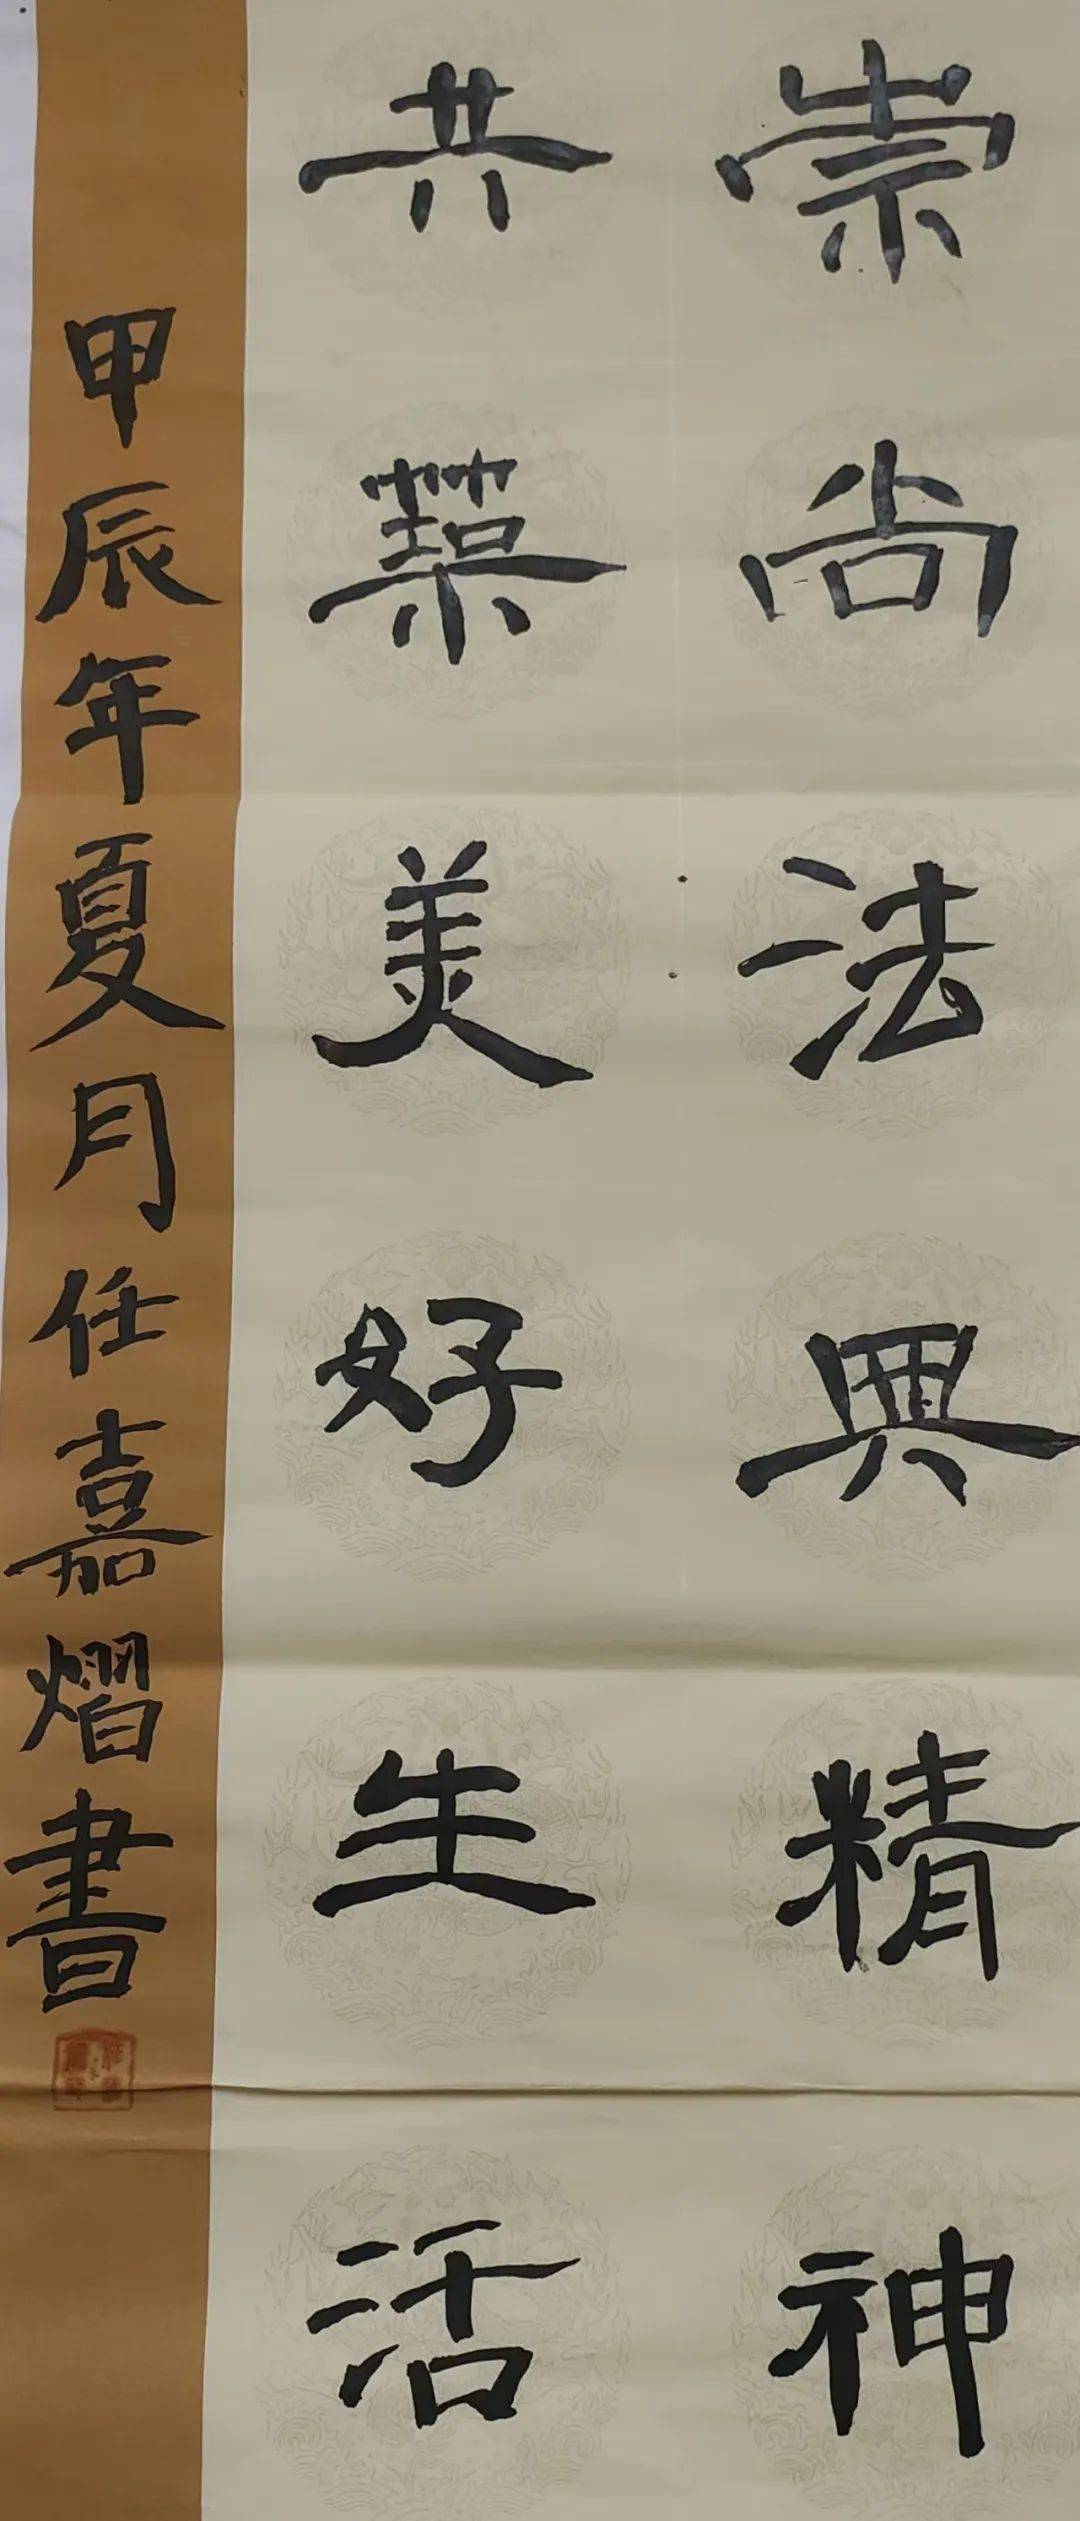 崇尚法典精神
共築美好生活
甲辰年夏月任嘉熠書